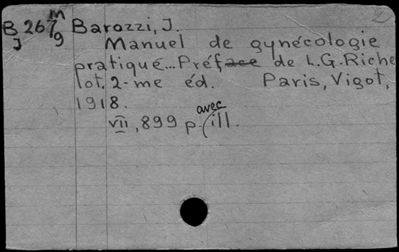 M
B 267 Barozzi, J.
J 9
Manuel de gynécologie
pratique... Préface de L.G. Riche
lot. 2-me éd. Paris, Vigot,
1918.
avec
VII, 899 p. ill.